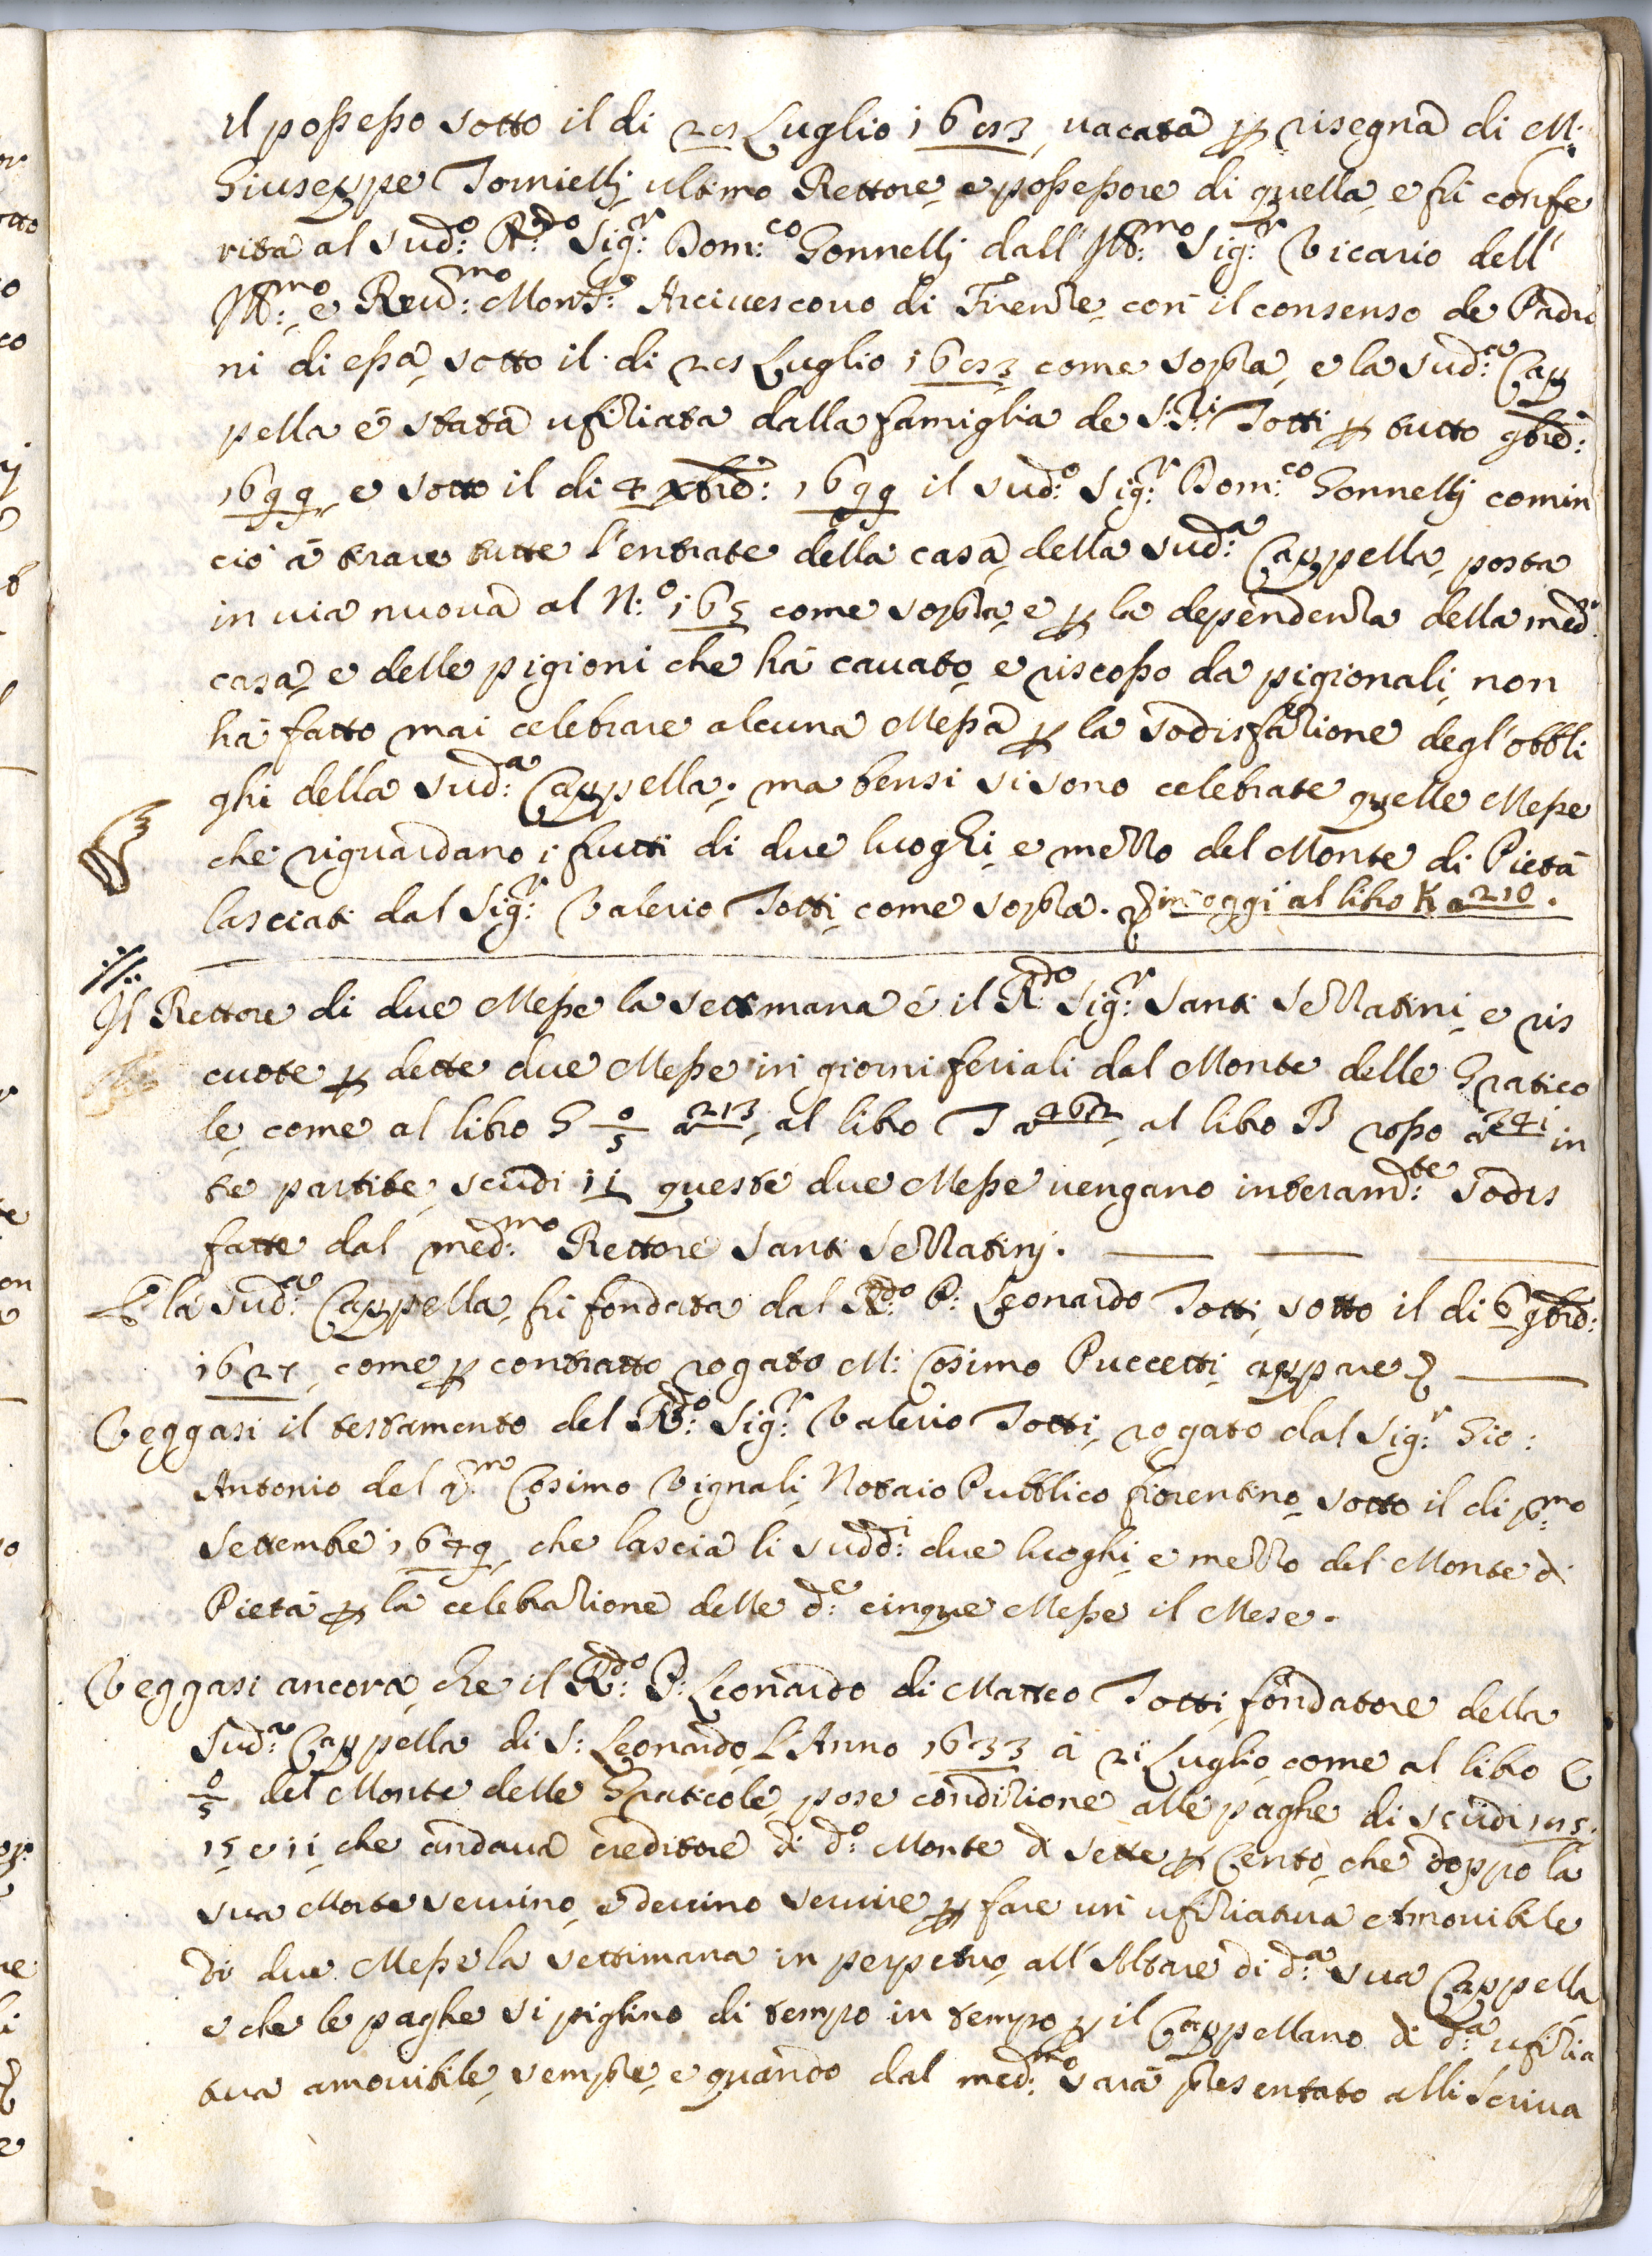 il possesso sotto il di 28 Luglio 1683, uacata p risegna di M:
Giuseppe Tornielli ultimo Rettore e possessore di quella, e fu confe
rita al sud:º R:do Sig:r Dom:co Gonnelli dall' Ill:mo Sig:r Vicario dell'
Ill:mo e Reud:mo Mons:re Arciuescouo di Firenze, con il consenso de Padro
ni di essa, sotto il di 28 Luglio 1683 come sopra, e la sud:a Cap
pella é stata ufiziata dalla famiglia de S:ri Totti p tutto 9bre:
1699, e sotto il di 4 Xbre: 1699 il sud:º Sig:r Dom:co Gonnelli comin
ció á trare tutte l'entrate della casa, della sud:a Cappella, posta
in uia nuoua al N:º 165 come sopra, e p la dependenza della med:a
casa, e delle pigioni che há cauato, e riscosso da pigionali, non
há fatto mai celebrare alcuna Messa p la sodisfazione degl'obbli
ghi della sud:a Cappella; ma bensi si sono celebrate quelle Messe
che riguardano i frutti di due luoghi, e mezzo del Monte di Pietá
lasciati dal Sig:r Valerio Totti, come sopra. in oggi al libro K a 210.
Il Rettore di due Messe la settimana é il R:do Sig:r Santi Sellatini, e ris
cuote p dette due Messe in giorni feriali dal Monte delle Gratico
le, come al libro G 0/5 a 213, al libro T a 462, al libro B rosso a 341 in
te partite, scudi 11 queste due Messe uengano interamd:te sodis
fatte dal med:mo Rettore Santi Sellatinj.
E la sud:a Cappella, fu fondata dal R:do P: Leonardo Totti, sotto il di 6 9bre:
1627, come p contratto rogato M: Cosimo Puccetti, appare
Veggasi il testamento del R:do Sig:r Valerio Totti, rogato dal Sig:r Gio:
Antonio del q:m Cosimo Vignali, Notaio Pubblico fiorentino, sotto il di p:mo
Settembre 1649, che lascia li sudd:i due luoghi, e mezzo del Monte di
Pietá p la celebrazione delle d:e cinque Messe il Mese.
Veggasi ancora, che il R:do P: Leonardo di Matteo Totti, fondatore della
Sud:a Cappella di S: Leonardo, L'Anno 1633 á 21 Luglio, come al libro C
0/5 del Monte delle Graticole, pose condizione alle paghe di scudi 185.
15 e 11, che andaua creditore di d:º Monte di sette p Cento, che doppo la
sua Morte seruino, e deuino seruire p fare un ufiziatura Amouibile
di due Messe la settimana in perpetuo, all'Altare di d:a sua Cappella
e che le paghe si piglino di tempo in tempo p il Cappellano di d:a ufizia
tura amouibile, sempre, e quando dal med:mo sará presentato alli Scriua